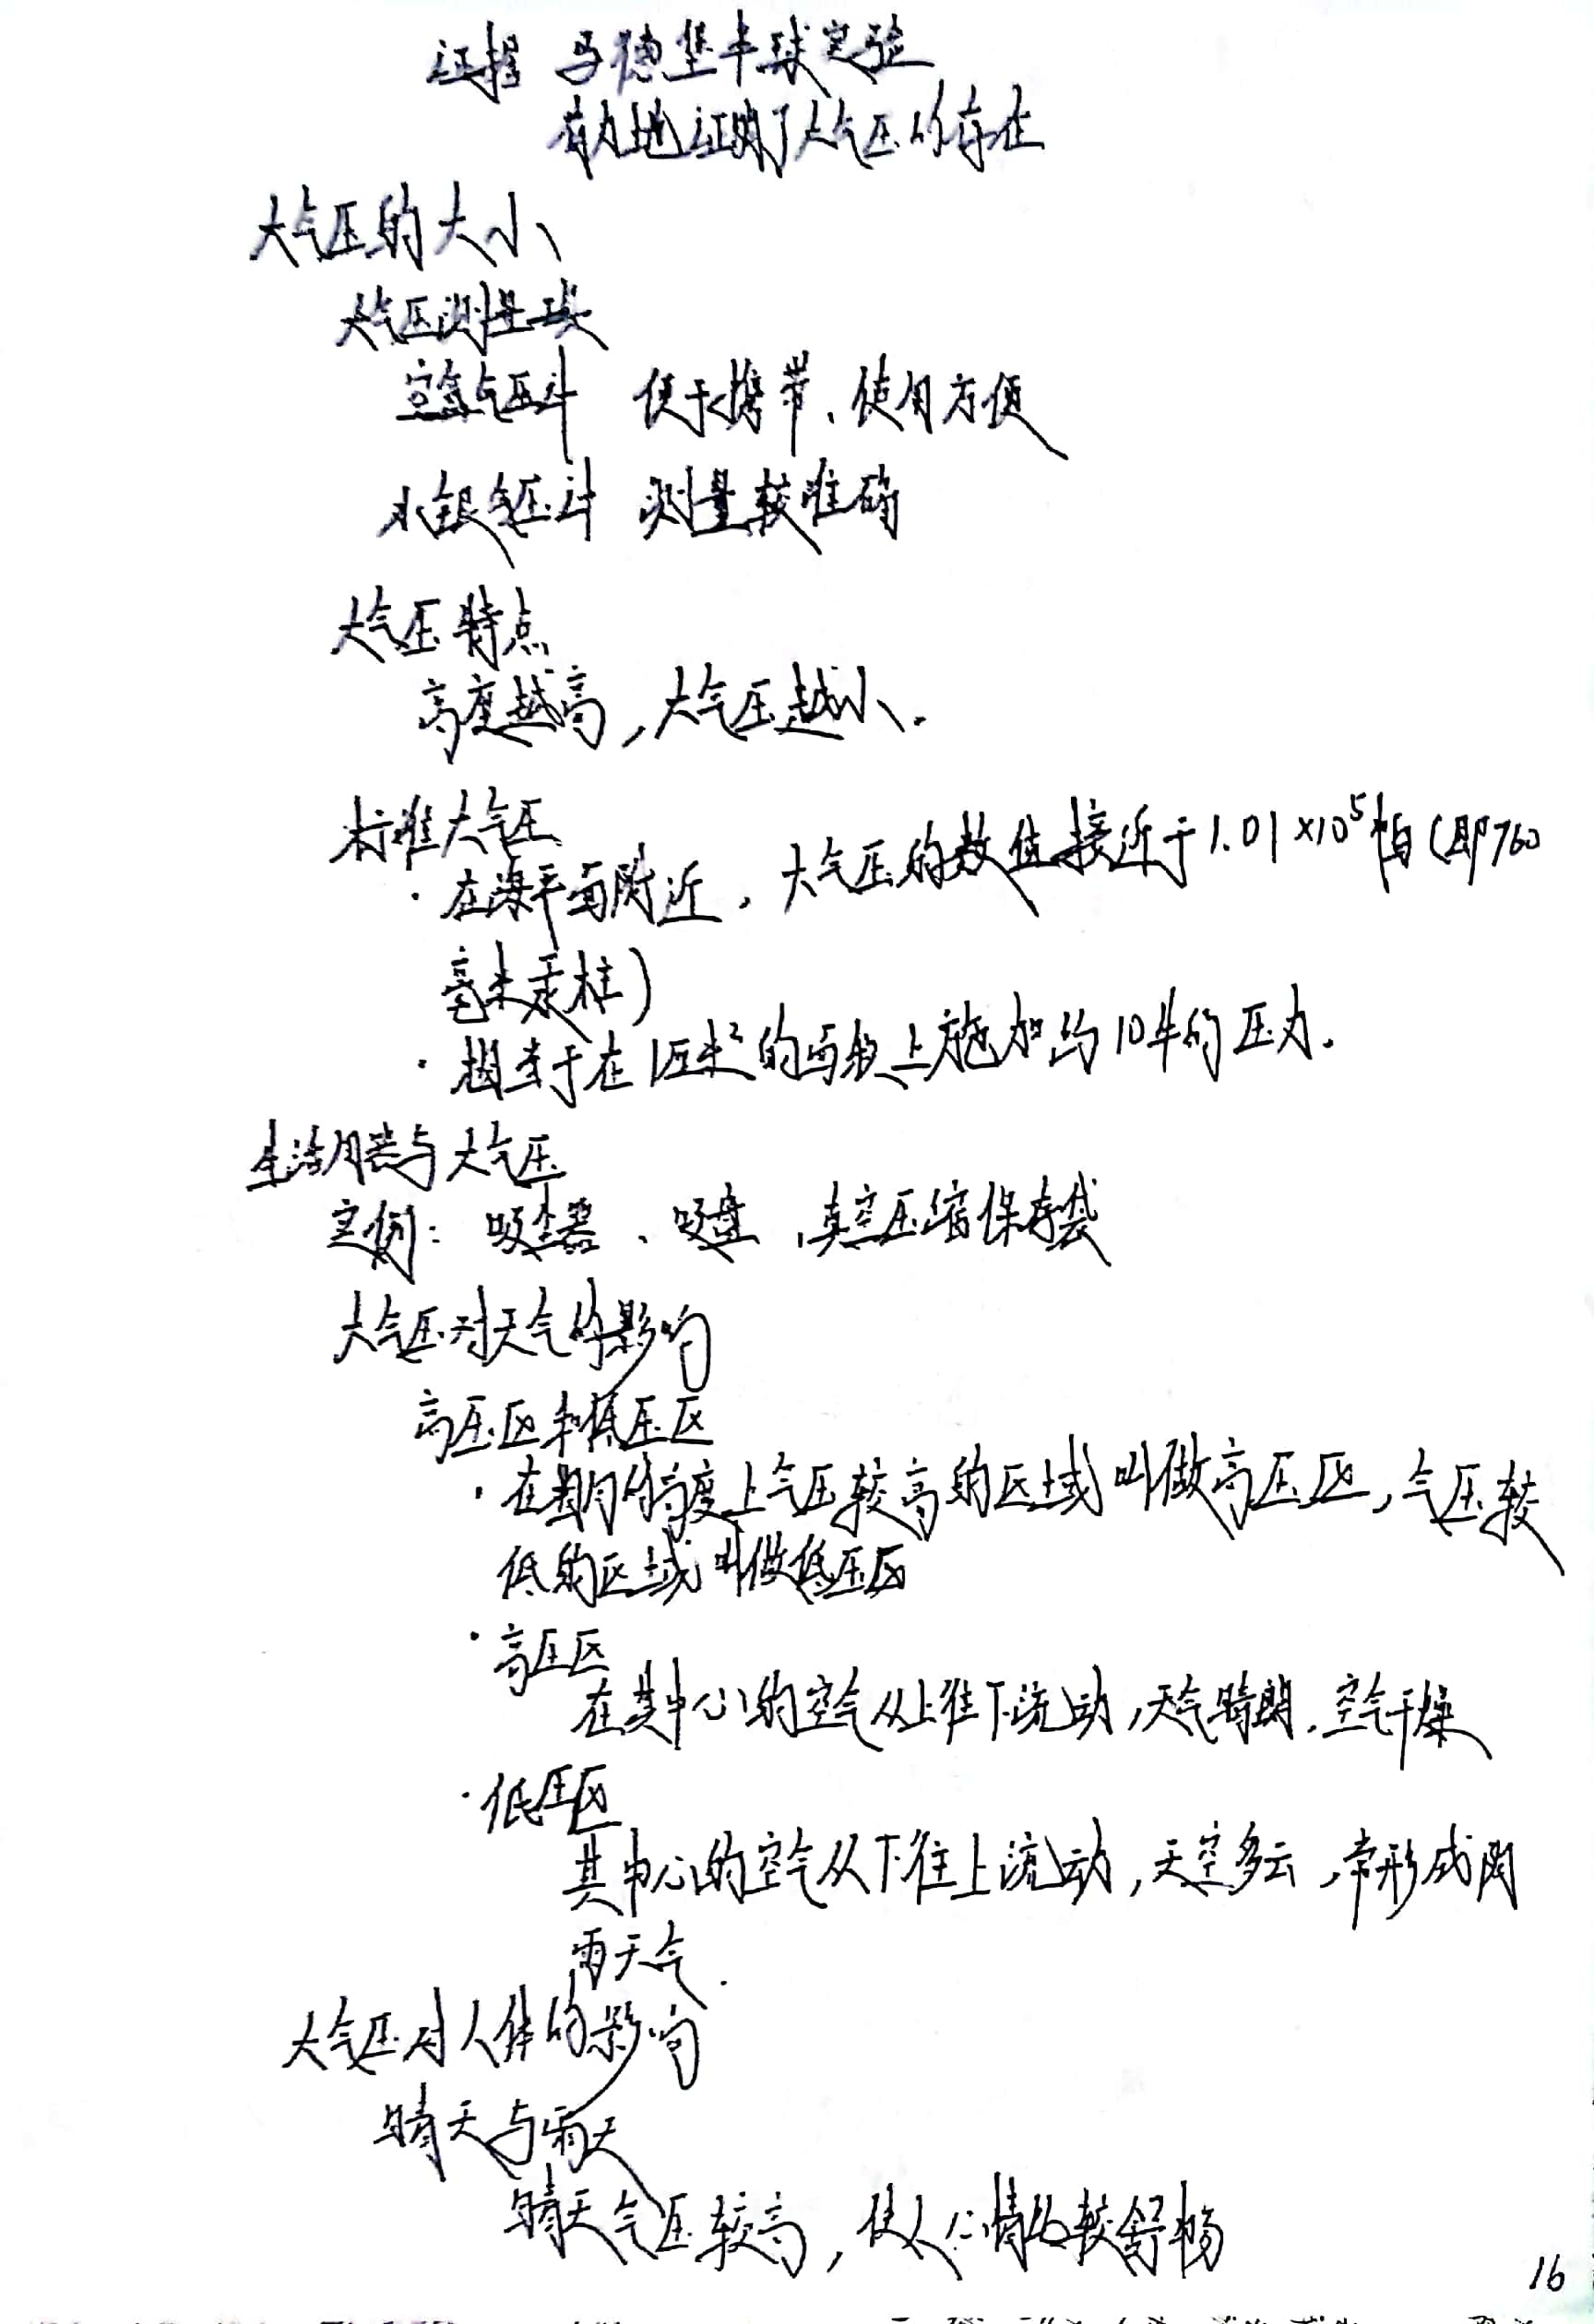 证据 马德堡半球实验
有力地证明了大气压的存在
大气压的大小
大气压测量工具
空盒气压计 便于携带、使用方便
水银气压计 测量较准确
大气压特点
高度越高，大气压越小．
标准大气压
· 在海平面附近，大气压的数值接近于1.01×10⁵帕（即760
毫米汞柱）
· 相当于在1厘米²的面积上施加约10牛的压力．
生活用装与大气压
实例：吸尘器、吸盘、真空压缩保存袋
大气压对天气的影响
高压区和低压区
· 在相同的高度上气压较高的区域叫做高压区，气压较
低的区域叫做低压区
· 高压区
在其中心的空气从上往下流动，天气晴朗，空气干燥
· 低压区
其中心的空气从下往上流动，天空多云，常形成阴
雨天气．
大气压对人体的影响
晴天与雨天
晴天气压较高，使人心情比较舒畅
16